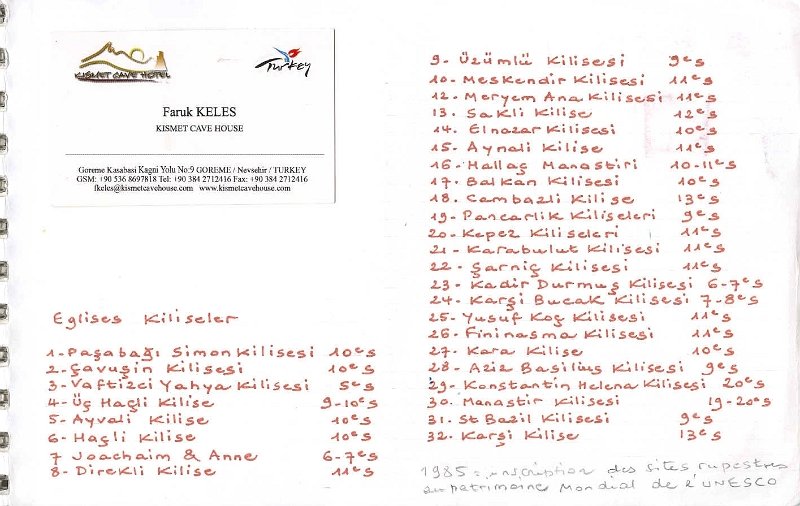 KISMET CAVE HOTEL
Turkey
Faruk KELES
KISMET CAVE HOUSE
Goreme Kasabasi Kagni Yolu No:9 GOREME / Nevsehir / TURKEY
GSM: +90 536 8697818 Tel: +90 384 2712416 Fax: +90 384 2712416
fkeles@kismetcavehouse.com www.kismetcavehouse.com
Eglises Kiliseler
1-Paşabağı Simon Kilisesi 10es
2-Çavuşin Kilisesi 10es
3-Vaftizci Yahya Kilisesi 5es
4-Üç Haçli Kilise 9-10es
5-Ayvali Kilise 10es
6-Haçli Kilise 10es
7 Joachaim & Anne 6-7es
8-Direkli Kilise 11es
9-Üzümlü Kilisesi 9es
10-Meskendir Kilisesi 11es
12-Meryem Ana Kilisesi 11es
13. Sakli Kilise 12es
14. Elnazar Kilisesi 10es
15-Aynali Kilise 11es
16-Hallaç Manastiri 10-11es
17-Balkan Kilisesi 10es
18. Cambazli Kilise 13es
19-Pancarlik Kiliseleri 9es
20-Kepez Kiliseleri 11es
21-Karabulut Kilisesi 11es
22-Şarniç Kilisesi 11es
23-Kadir Durmuş Kilisesi 6-7es
24-Karşi Bucak Kilisesi 7-8es
25-Yusuf Koç Kilisesi 11es
26-Fininasma Kilisesi 11es
27-Kara Kilise 10es
28-Aziz Basilius Kilisesi 9es
29-Konstantin Helena Kilisesi 20es
30. Manastir Kilisesi 19-20es
31. St Bazil Kilisesi 9es
32-Karşi Kilise 13es
1985 = inscription des sites rupestres
au patrimoine Mondial de l'UNESCO